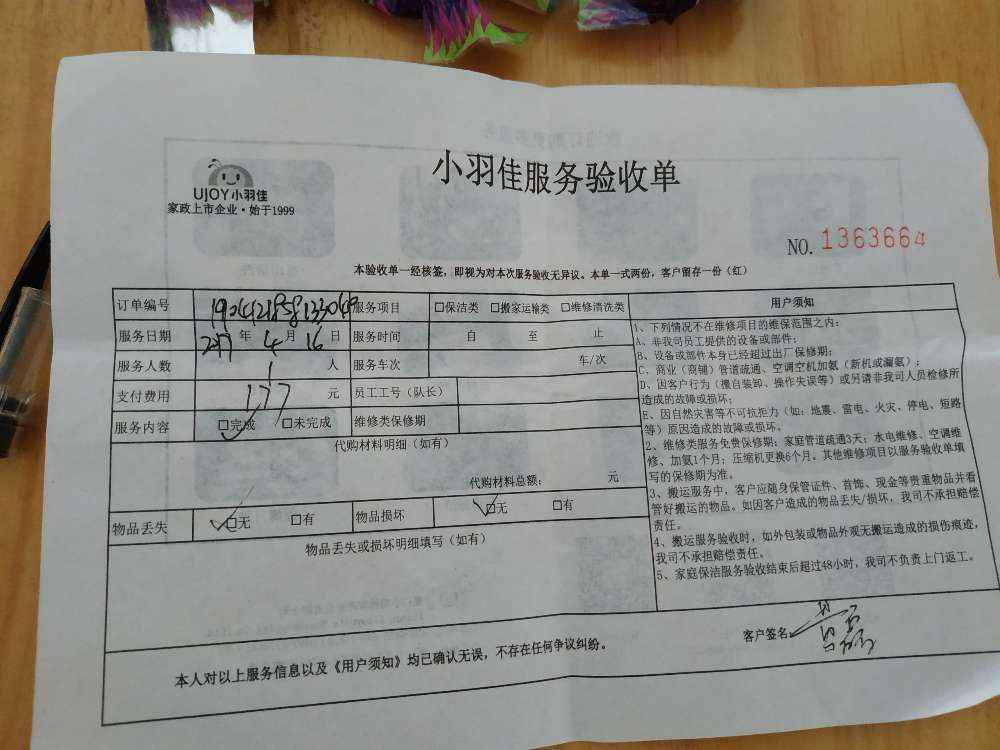 小羽佳服务验收单
UJOY小羽佳
家政上市企业·始于1999
NO. 1363664
本验收单一经核签，即视为对本次服务验收无异议。本单一式两份，客户留存一份（红）
订单编号 服务项目 □保洁类 □搬家运输类 □维修清洗类
服务日期 年 4 月 16 日 服务时间 自 至 止
服务人数 1 人 服务车次 车/次
支付费用 177 元 员工工号（队长）
服务内容 □完成 □未完成 维修类保修期
代购材料明细（如有）
代购材料总额： 元
物品丢失 □无 □有 物品损坏 □无 □有
物品丢失或损坏明细填写（如有）
用户须知
1、下列情况不在维修项目的维保范围之内：
A、非我司员工提供的设备或部件；
B、设备或部件本身已经超过出厂保修期；
C、商业（商铺）管道疏通、空调空机加氨（新机或漏氨）；
D、因客户行为（擅自装卸、操作失误等）或另请非我司人员检修所
造成的故障或损坏；
E、因自然灾害等不可抗拒力（如：地震、雷电、火灾、停电、短路
等）原因造成的故障或损坏。
2、维修类服务免费保修期：家庭管道疏通3天；水电维修、空调维
修、加氨1个月；压缩机更换6个月。其他维修项目以服务验收单填
写的保修期为准。
3、搬运服务中，客户应随身保管证件、首饰、现金等贵重物品并看
管好搬运的物品。如因客户造成的物品丢失/损坏，我司不承担赔偿
责任。
4、搬运服务验收时，如外包装或物品外观无搬运造成的损伤痕迹，
我司不承担赔偿责任。
5、家庭保洁服务验收结束后超过48小时，我司不负责上门返工。
客户签名
本人对以上服务信息以及《用户须知》均已确认无误，不存在任何争议纠纷。